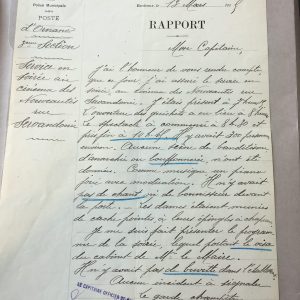 Police Municipale
POSTE
d'Ornano
Section
Service en
soirée au
cinéma des
Nouveautés
rue
Servandoni
Bordeaux, le 18 mars 19
RAPPORT
Mon Capitaine,
J'ai l'honneur de vous rendre compte
que ce jour j'ai assuré le service en
soirée, au cinéma des Nouveautés rue
Servandoni. J'étais présent à
l'ouverture des guichets a eu lieu à 8 heures
le spectacle a commencé à 8h,30 et
pris fin à 10h,45. Il y avait 300 personnes
environ. Aucune scène de banditisme
d'anarchie ou bouffonnerie n'ont été
données. Comme musique un piano
joué avec modération. Il n'y avait
pas de chant ni de bonniche devant
la porte. Les dames étaient munies
de cache pointes à leurs épingles à chapeau.
Je me suis fait présenter le program
me de la soirée, lequel portait le visa
du cabinet de Mr le Maire.
Il n'y avait pas de buvette dans l'établisse
Aucun incident à signaler
le garde
LE CAPITAINE OFFICIER DE